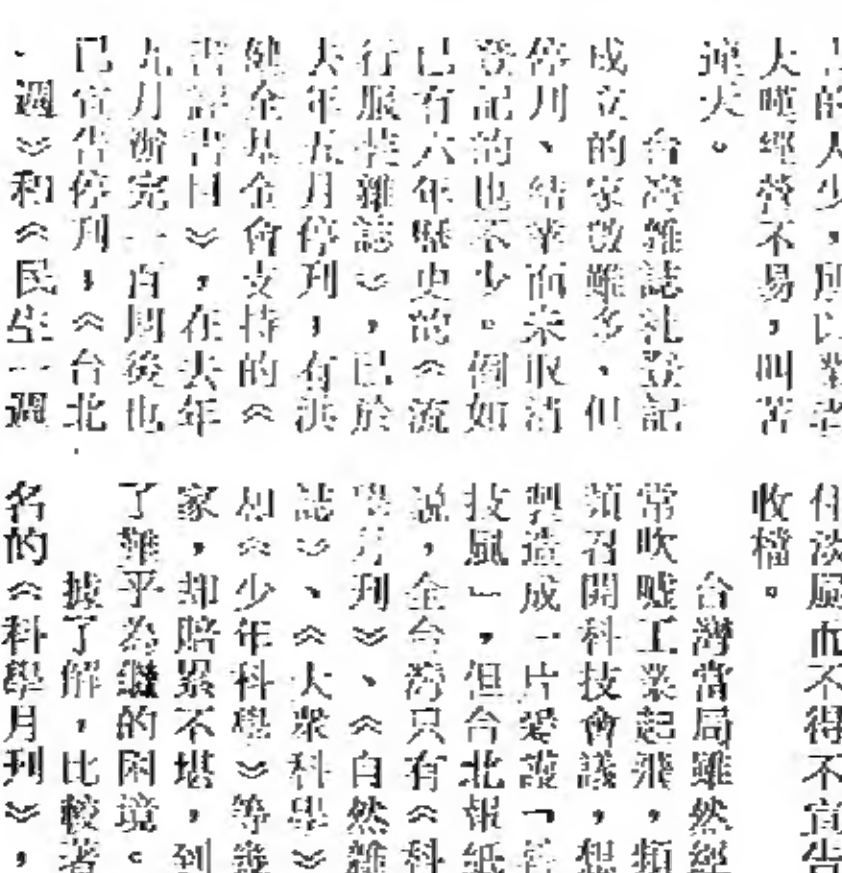 的人少，所以業者
大嘆經營不易，叫苦
連天。
台灣雜誌社登記
成立的家數雖多，但
停刊、結束而未取消
登記的也不少。例如
已有六年歷史的《流
行服裝雜誌》，已於
去年五月停刊，有洪
健全基金會支持的《
書評書目》，在去年
九月辦完一百期後也
已宣告停刊，《台北
一週》和《民生一週
淡風而不得不宣告
收檔。
台灣當局雖然經
常吹噓工業起飛，頻
頻召開科技會議，想
製造成一片愛護「
技風」，但台北報紙
說，全台灣只有《科
學月刊》、《自然雜
誌》、《大眾科學》
和《少年科學》等幾
家，却賠累不堪，到
了難乎為繼的困境。
據了解，比較著
名的《科學月刊》，